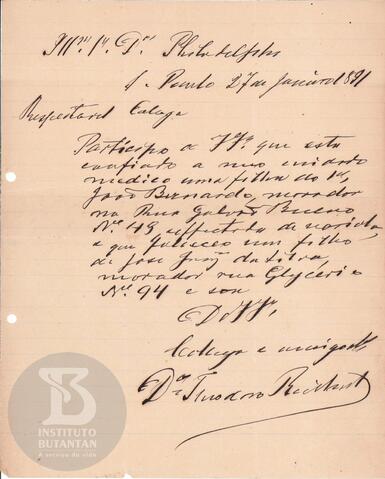 Illmo. Sr. Dr. Philadelpho
S. Paulo 27 de Janeiro 1891
Respeitavel Collega
Participo a VSa. que esta
confiado a meu cuidado
medico uma filha do Sr.
João Bernardo, morador
na Rua Galvão Bueno
No. 43 affectada de variola,
e que falleceu um filho
de José da Silva,
morador rua Glycerio
No. 94 e sou
De VS.
Collega e amigo
Dor. Theodoro Reichert
INSTITUTO
BUTANTAN
A serviço da vida